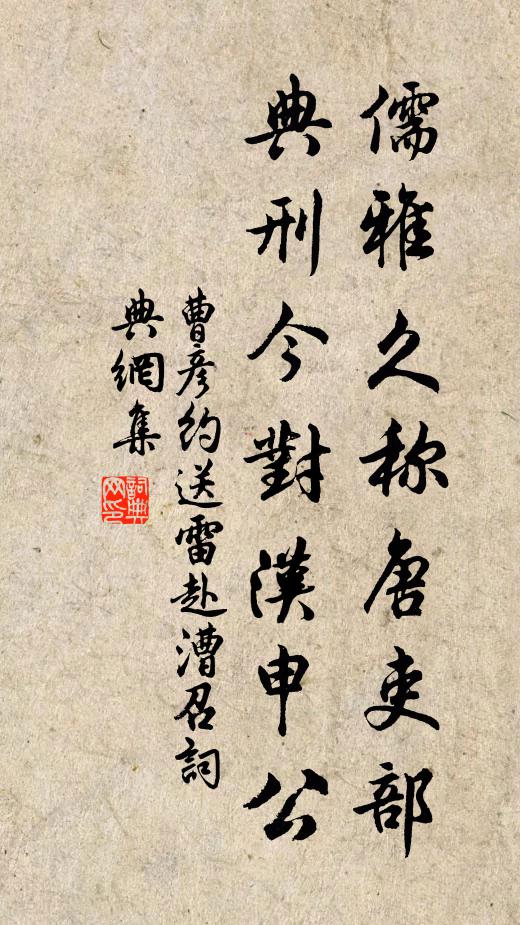 儒雅久称唐吏部
典刑今對漢申公
曹彦約送雷赴漕召詞
典網集
詞典
网印